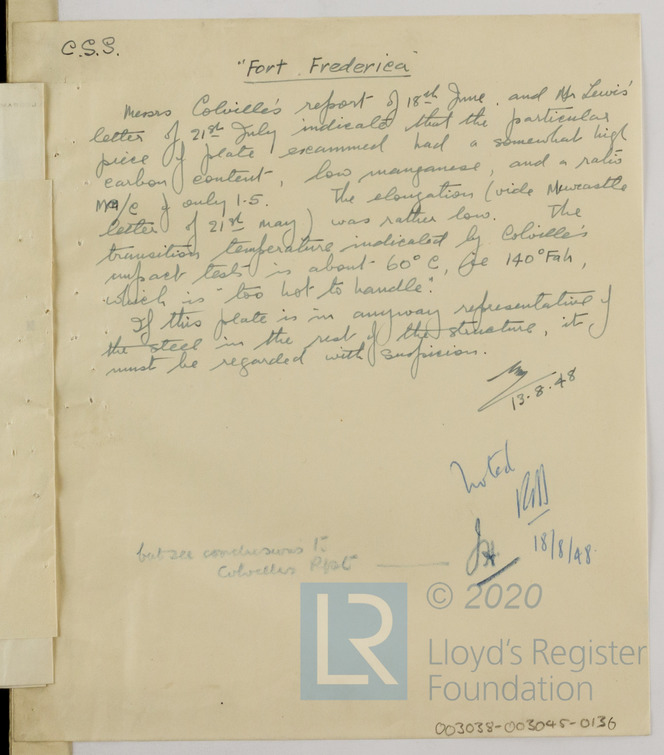 C.S.S.
"Fort Frederica"
Messrs Colville's report of 18th June, and Mr Lewis'
letter of 21st July indicate that the particular
piece of plate examined had a somewhat high
carbon content, low manganese, and a ratio
Mn/C of only 1.5. The elongation (vide Newcastle
letter of 21st May) was rather low. The
transition temperature indicated by Colville's
impact tests is about 60°C, (ie 140°Fah,
which is "too hot to handle".
If this plate is in anyway representative of
the steel in the rest of the structure, it
must be regarded with suspicion.
13.8.48
Noted
18/8/48
but see conclusions to
Colvilles Rpt
LR
© 2020
Lloyd's Register
Foundation
003038-003045-0136